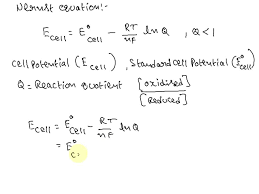 Nernst equation:-
E cell = E° cell - RT/nF ln Q , Q < 1
cell potential (E cell) , standard cell potential (E° cell)
Q = Reaction quotient [oxidised]/[Reduced]
E cell = E° cell - RT/nF ln Q
= E° c